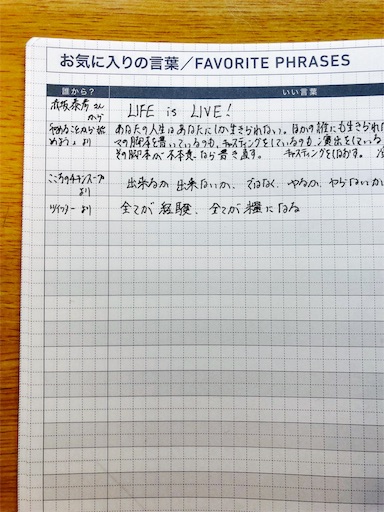 お気に入りの言葉／FAVORITE PHRASES
誰から？ いい言葉
赤坂泰彦さんから LIFE is LIVE!
やめることから始めよう、より あなたの人生はあなたにしか生きられない。ほかの誰にも生きられ
マの脚本を書いているのも、キャスティングをしているのも、演出をしている
その脚本が不本意なら書き直す。 キャスティングしなおす。
こころのチキンスープより 出来るか出来ないか、ではなく、やるか、やらないか
ツイッターより 全てが経験、全てが糧になる